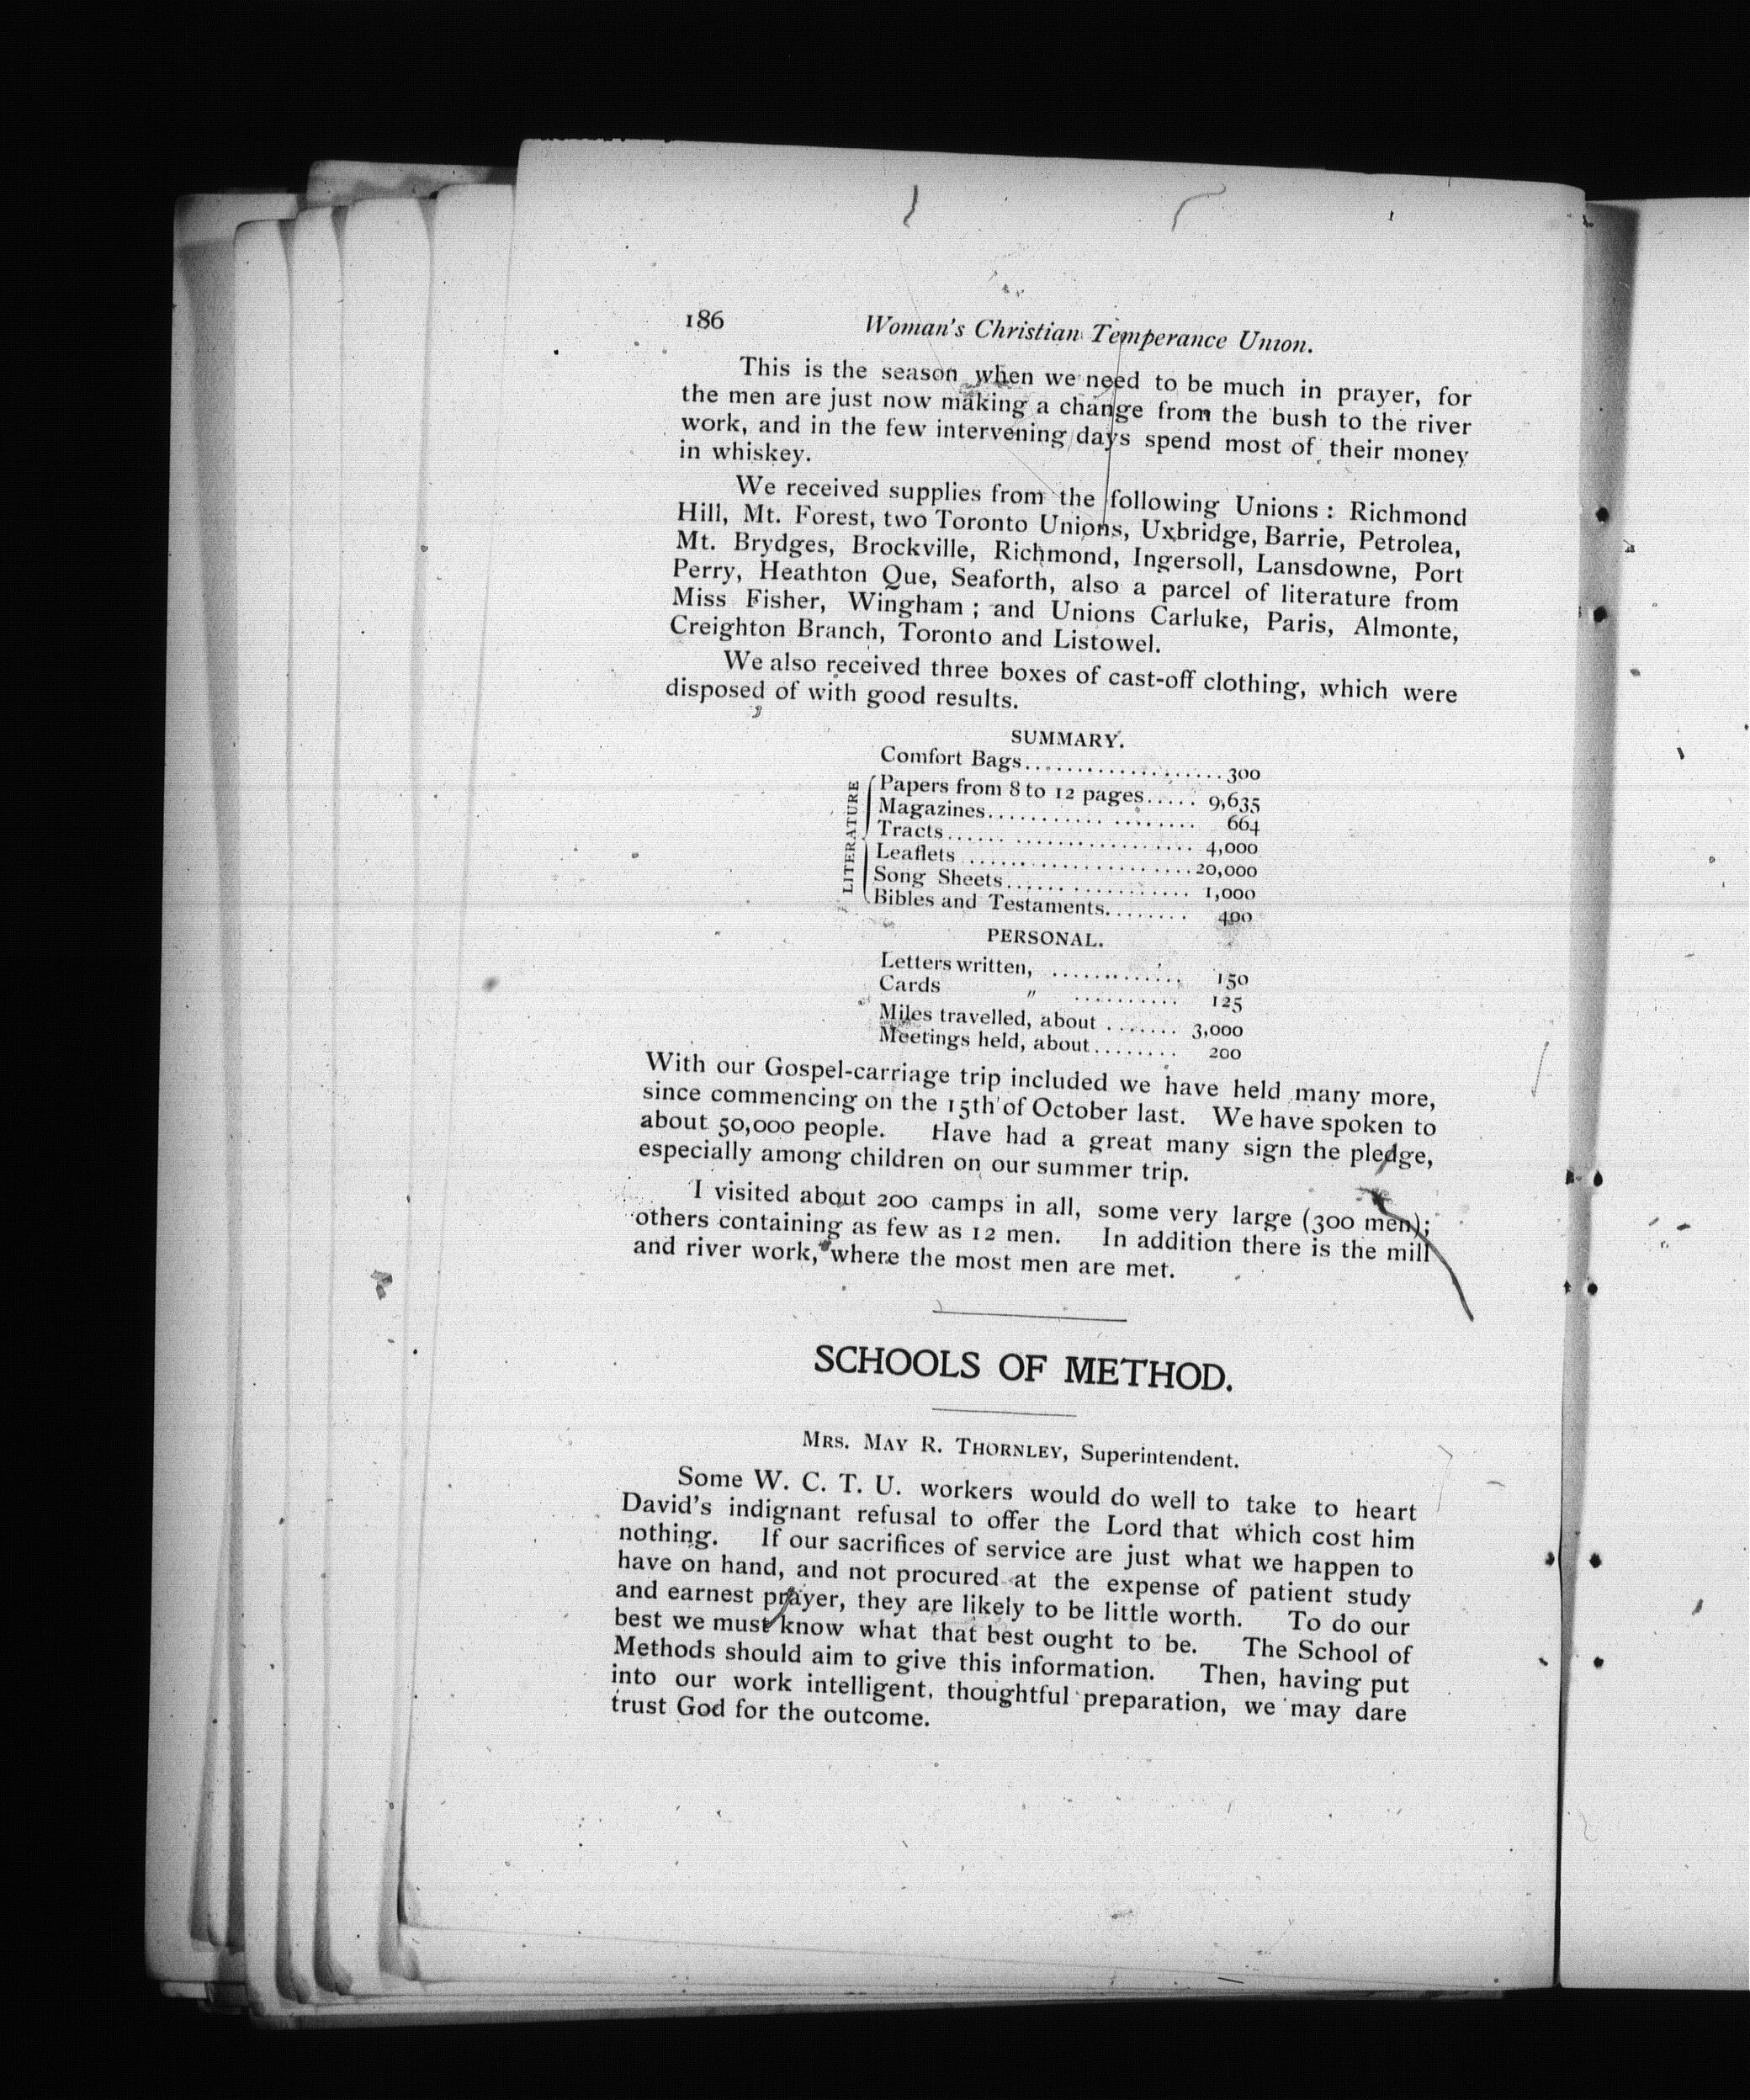 186 Woman's Christian Temperance Union.
This is the season when we need to be much in prayer, for
the men are just now making a change from the bush to the river
work, and in the few intervening days spend most of their money
in whiskey.
We received supplies from the following Unions : Richmond
Hill, Mt. Forest, two Toronto Unions, Uxbridge, Barrie, Petrolea,
Mt. Brydges, Brockville, Richmond, Ingersoll, Lansdowne, Port
Perry, Heathton Que, Seaforth, also a parcel of literature from
Miss Fisher, Wingham ; and Unions Carluke, Paris, Almonte,
Creighton Branch, Toronto and Listowel.
We also received three boxes of cast-off clothing, which were
disposed of with good results.
SUMMARY.
Comfort Bags.................... 300
LITERATURE
Papers from 8 to 12 pages..... 9,635
Magazines.................... 664
Tracts........................ 4,000
Leaflets ......................20,000
Song Sheets................... 1,000
Bibles and Testaments........ 400
PERSONAL.
Letters written, ............. 150
Cards " .......... 125
Miles travelled, about ....... 3,000
Meetings held, about........ 200
With our Gospel-carriage trip included we have held many more,
since commencing on the 15th of October last. We have spoken to
about 50,000 people. Have had a great many sign the pledge,
especially among children on our summer trip.
I visited about 200 camps in all, some very large (300 men);
others containing as few as 12 men. In addition there is the mill
and river work, where the most men are met.
SCHOOLS OF METHOD.
MRS. MAY R. THORNLEY, Superintendent.
Some W. C. T. U. workers would do well to take to heart
David's indignant refusal to offer the Lord that which cost him
nothing. If our sacrifices of service are just what we happen to
have on hand, and not procured at the expense of patient study
and earnest prayer, they are likely to be little worth. To do our
best we must know what that best ought to be. The School of
Methods should aim to give this information. Then, having put
into our work intelligent, thoughtful preparation, we may dare
trust God for the outcome.